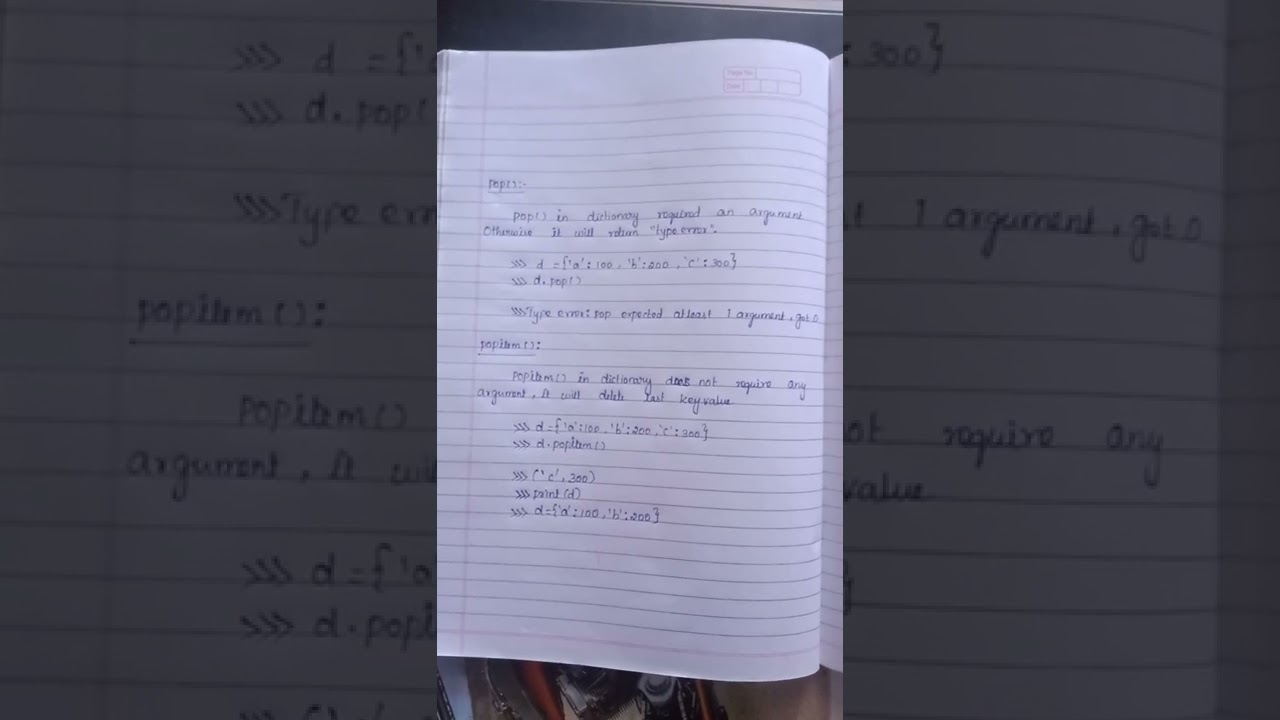 Page No.
Date
pop():-
pop() in dictionary required an argument
Otherwise it will return "type error".
>>> d ={'a':100, 'b':200, 'c':300}
>>> d.pop()
>>>Type error: pop expected atleast 1 argument, got 0
popitem():
popitem() in dictionary does not require any
argument, it will delete last key value
>>> d={'a':100, 'b':200, 'c':300}
>>> d.popitem()
>>> ('c', 300)
>>> print(d)
>>> d={'a':100, 'b':200}